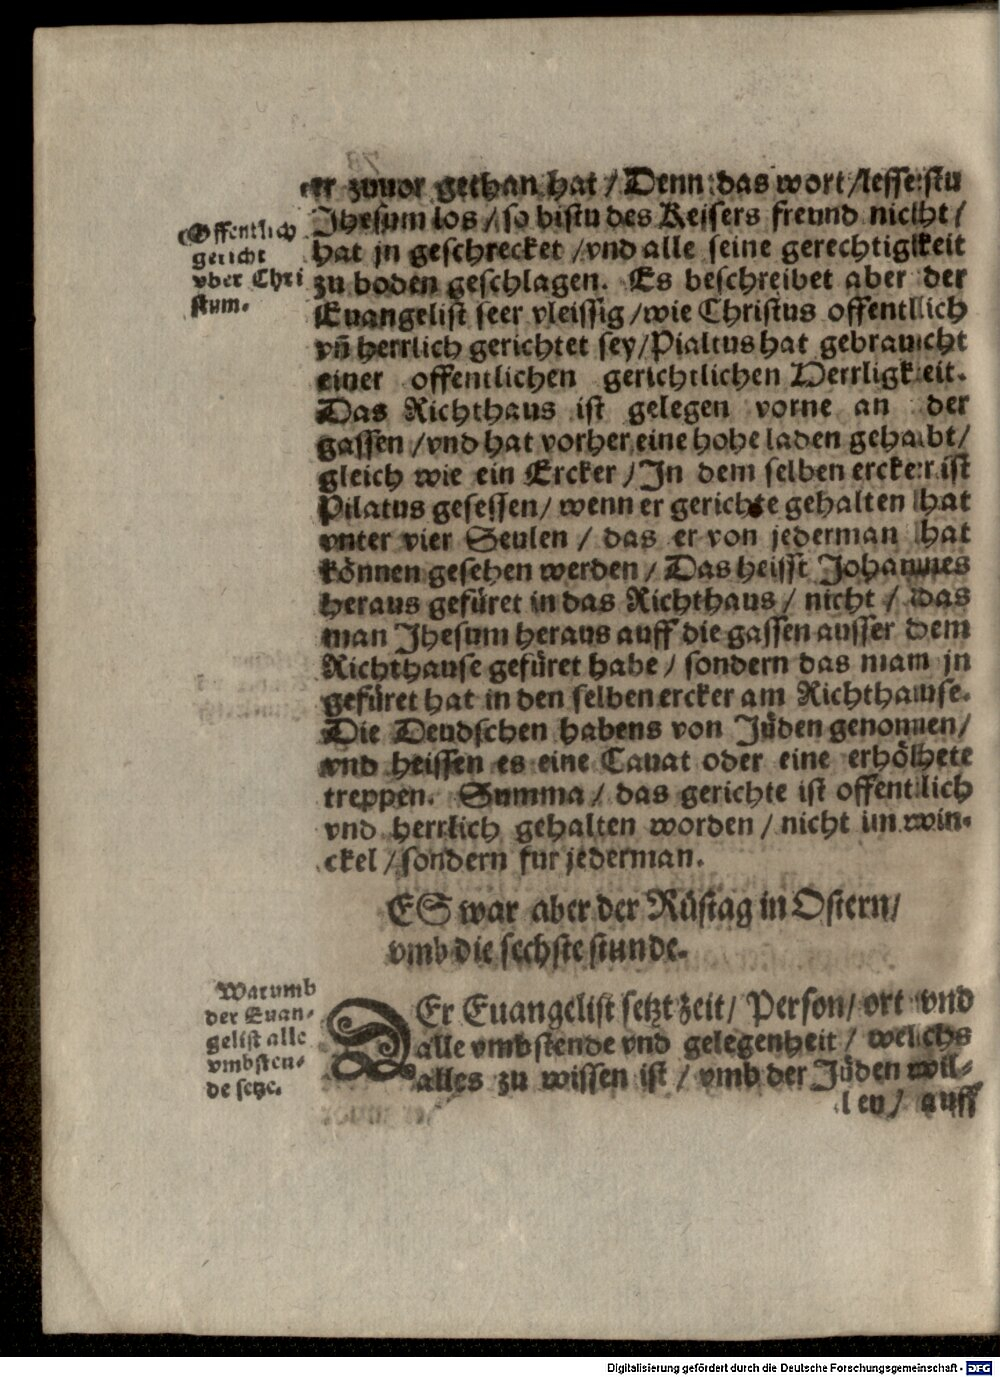 er zuuor gethan hat / Denn das wort / lessestu
Jhesum los / so bistu des Keisers freund nicht /
Offentlich
gericht
vber Chri
stum.
hat jn geschrecket / vnd alle seine gerechtigkeit
zu boden geschlagen. Es beschreibet aber der
Euangelist seer vleissig / wie Christus offentlich
vñ herrlich gerichtet sey / Pialtus hat gebraucht
einer offentlichen gerichtlichen Herrligkeit.
Das Richthaus ist gelegen vorne an der
gassen / vnd hat vorher eine hohe laden gehabt /
gleich wie ein Ercker / Jn dem selben ercker ist
Pilatus gesessen / wenn er gerichte gehalten hat
vnter vier Seulen / das er von jederman hat
können gesehen werden / Das heisst Johannes
heraus gefüret in das Richthaus / nicht / das
man Jhesum heraus auff die gassen ausser dem
Richthause gefüret habe / sondern das man jn
gefüret hat in den selben ercker am Richthause.
Die Deudschen habens von Jüden genomen /
vnd heissen es eine Cauat oder eine erhöhete
treppen. Summa / das gerichte ist offentlich
vnd herrlich gehalten worden / nicht im win-
ckel / sondern fur jederman.
ES war aber der Rüstag in Ostern /
vmb die sechste stunde.
Warumb
der Euan-
gelist alle
vmbsten-
de setze.
DEr Euangelist setzt zeit / Person / ort vnd
alle vmbstende vnd gelegenheit / welchs
alles zu wissen ist / vmb der Jüden wil-
len / auff
Digitalisierung gefördert durch die Deutsche Forschungsgemeinschaft - DFG